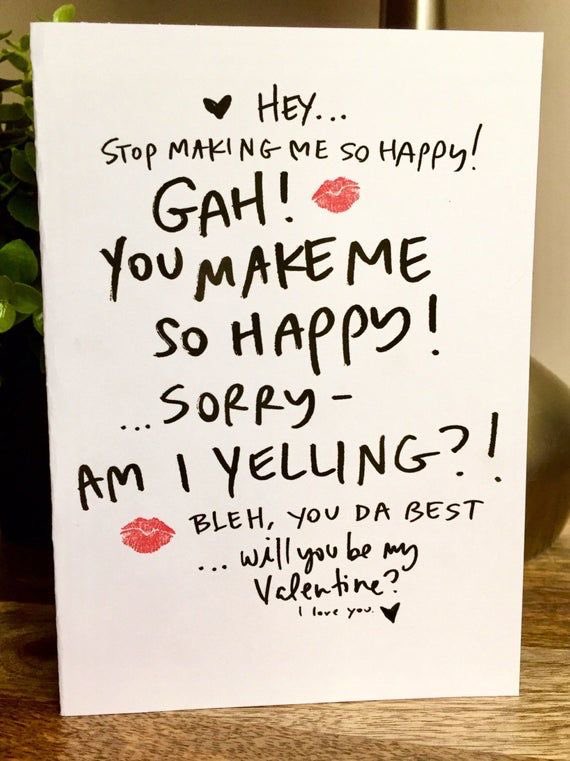 HEY...
STOP MAKING ME SO HAPPY!
GAH!
YOU MAKE ME
SO HAPPY!
...SORRY-
AM I YELLING?!
BLEH, YOU DA BEST
... will you be my
Valentine?
I love you.